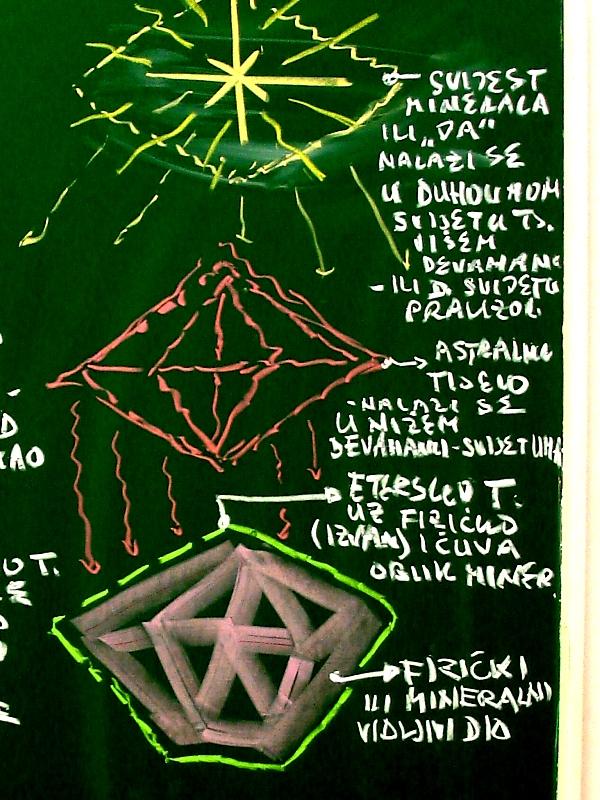 SVIJEST
MINERALA
ILI „DA“
NALAZI SE
U DUHOVNOM
SVIJETU TJ.
VIŠEM
DEVAHAN
- ILI D. SVIJETU
PRAUZOR
ASTRALNO
TIJELO
- NALAZI SE
U NIŽEM
DEVAHANU - SVIJETU
ETERSKO T.
UZ FIZIČKO
(IZVAN) I ČUVA
OBLIK MINER
FIZIČKI
ILI MINERALNI
VIDLJIVI DIO
D
KAO
T.